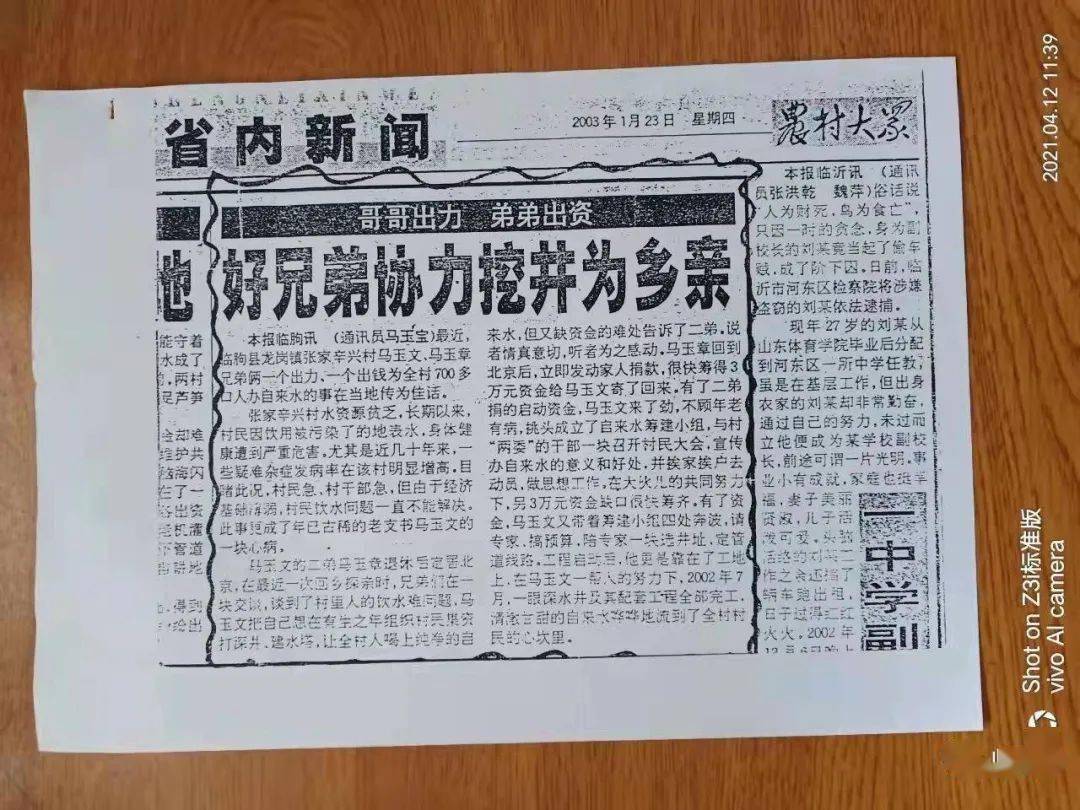 省内新闻
2003年1月23日 星期四
農村大眾
哥哥出力 弟弟出资
好兄弟协力挖井为乡亲
本报临朐讯 (通讯员马玉宝)最近,
临朐县龙岗镇张家辛兴村马玉文、马玉章
兄弟俩一个出力、一个出钱为全村700多
口人办自来水的事在当地传为佳话。
张家辛兴村水资源贫乏,长期以来,
村民因饮用被污染了的地表水,身体健
康遭到严重危害,尤其是近几十年来,一
些疑难杂症发病率在该村明显增高,目
睹此况,村民急、村干部急,但由于经济
基础薄弱,村民饮水问题一直不能解决。
此事更成了年已古稀的老支书马玉文的
一块心病,
马玉文的二弟马玉章退休后定居北
京,在最近一次回乡探亲时,兄弟们在一
块交谈,谈到了村里人的饮水难问题,马
玉文把自己想在有生之年组织村民集资
打深井、建水塔,让全村人喝上纯净的自
来水,但又缺资金的难处告诉了二弟,说
者情真意切,听者为之感动,马玉章回到
北京后,立即发动家人捐款,很快筹得3
万元资金给马玉文寄了回来,有了二弟
捐的启动资金,马玉文来了劲,不顾年老
有病,挑头成立了自来水筹建小组,与村
“两委”的干部一块召开村民大会,宣传
办自来水的意义和好处,并挨家挨户去
动员,做思想工作,在大伙儿的共同努力
下,另3万元资金缺口很快筹齐,有了资
金,马玉文又带着筹建小组四处奔波,请
专家、搞预算,陪专家一块选井址,定管
道线路,工程启动后,他更是靠在了工地
上,在马玉文一帮人的努力下,2002年7
月,一眼深水井及其配套工程全部完工,
清澈甘甜的自来水哗哗地流到了全村村
民的心坎里。
本报临沂讯 (通讯
员张洪乾 魏萍)俗话说
“人为财死,鸟为食亡”,
只因一时的贪念,身为副
校长的刘某竟当起了偷车
贼,成了阶下囚,日前,临
沂市河东区检察院将涉嫌
盗窃的刘某依法逮捕,
现年27岁的刘某从
山东体育学院毕业后分配
到河东区一所中学任教,
虽是在基层工作,但出身
农家的刘某却非常勤奋,
通过自己的努力,未过而
立他便成为某学校副校
长,前途可谓一片光明,事
业小有成就,家庭也挺幸
福,妻子美丽
贤淑,儿子活
泼可爱,头脑
活络的刘某工
作之余还搞了
辆车跑出租,
日子过得红红
火火,2002年
12月6日晚上
一中学副
地
能守着
水成了
两村
足芦笋
维护共
脑海闪
在了一
出资
下管道
得到
2021.04.12 11:39
Shot on Z3i标准版
vivo AI camera